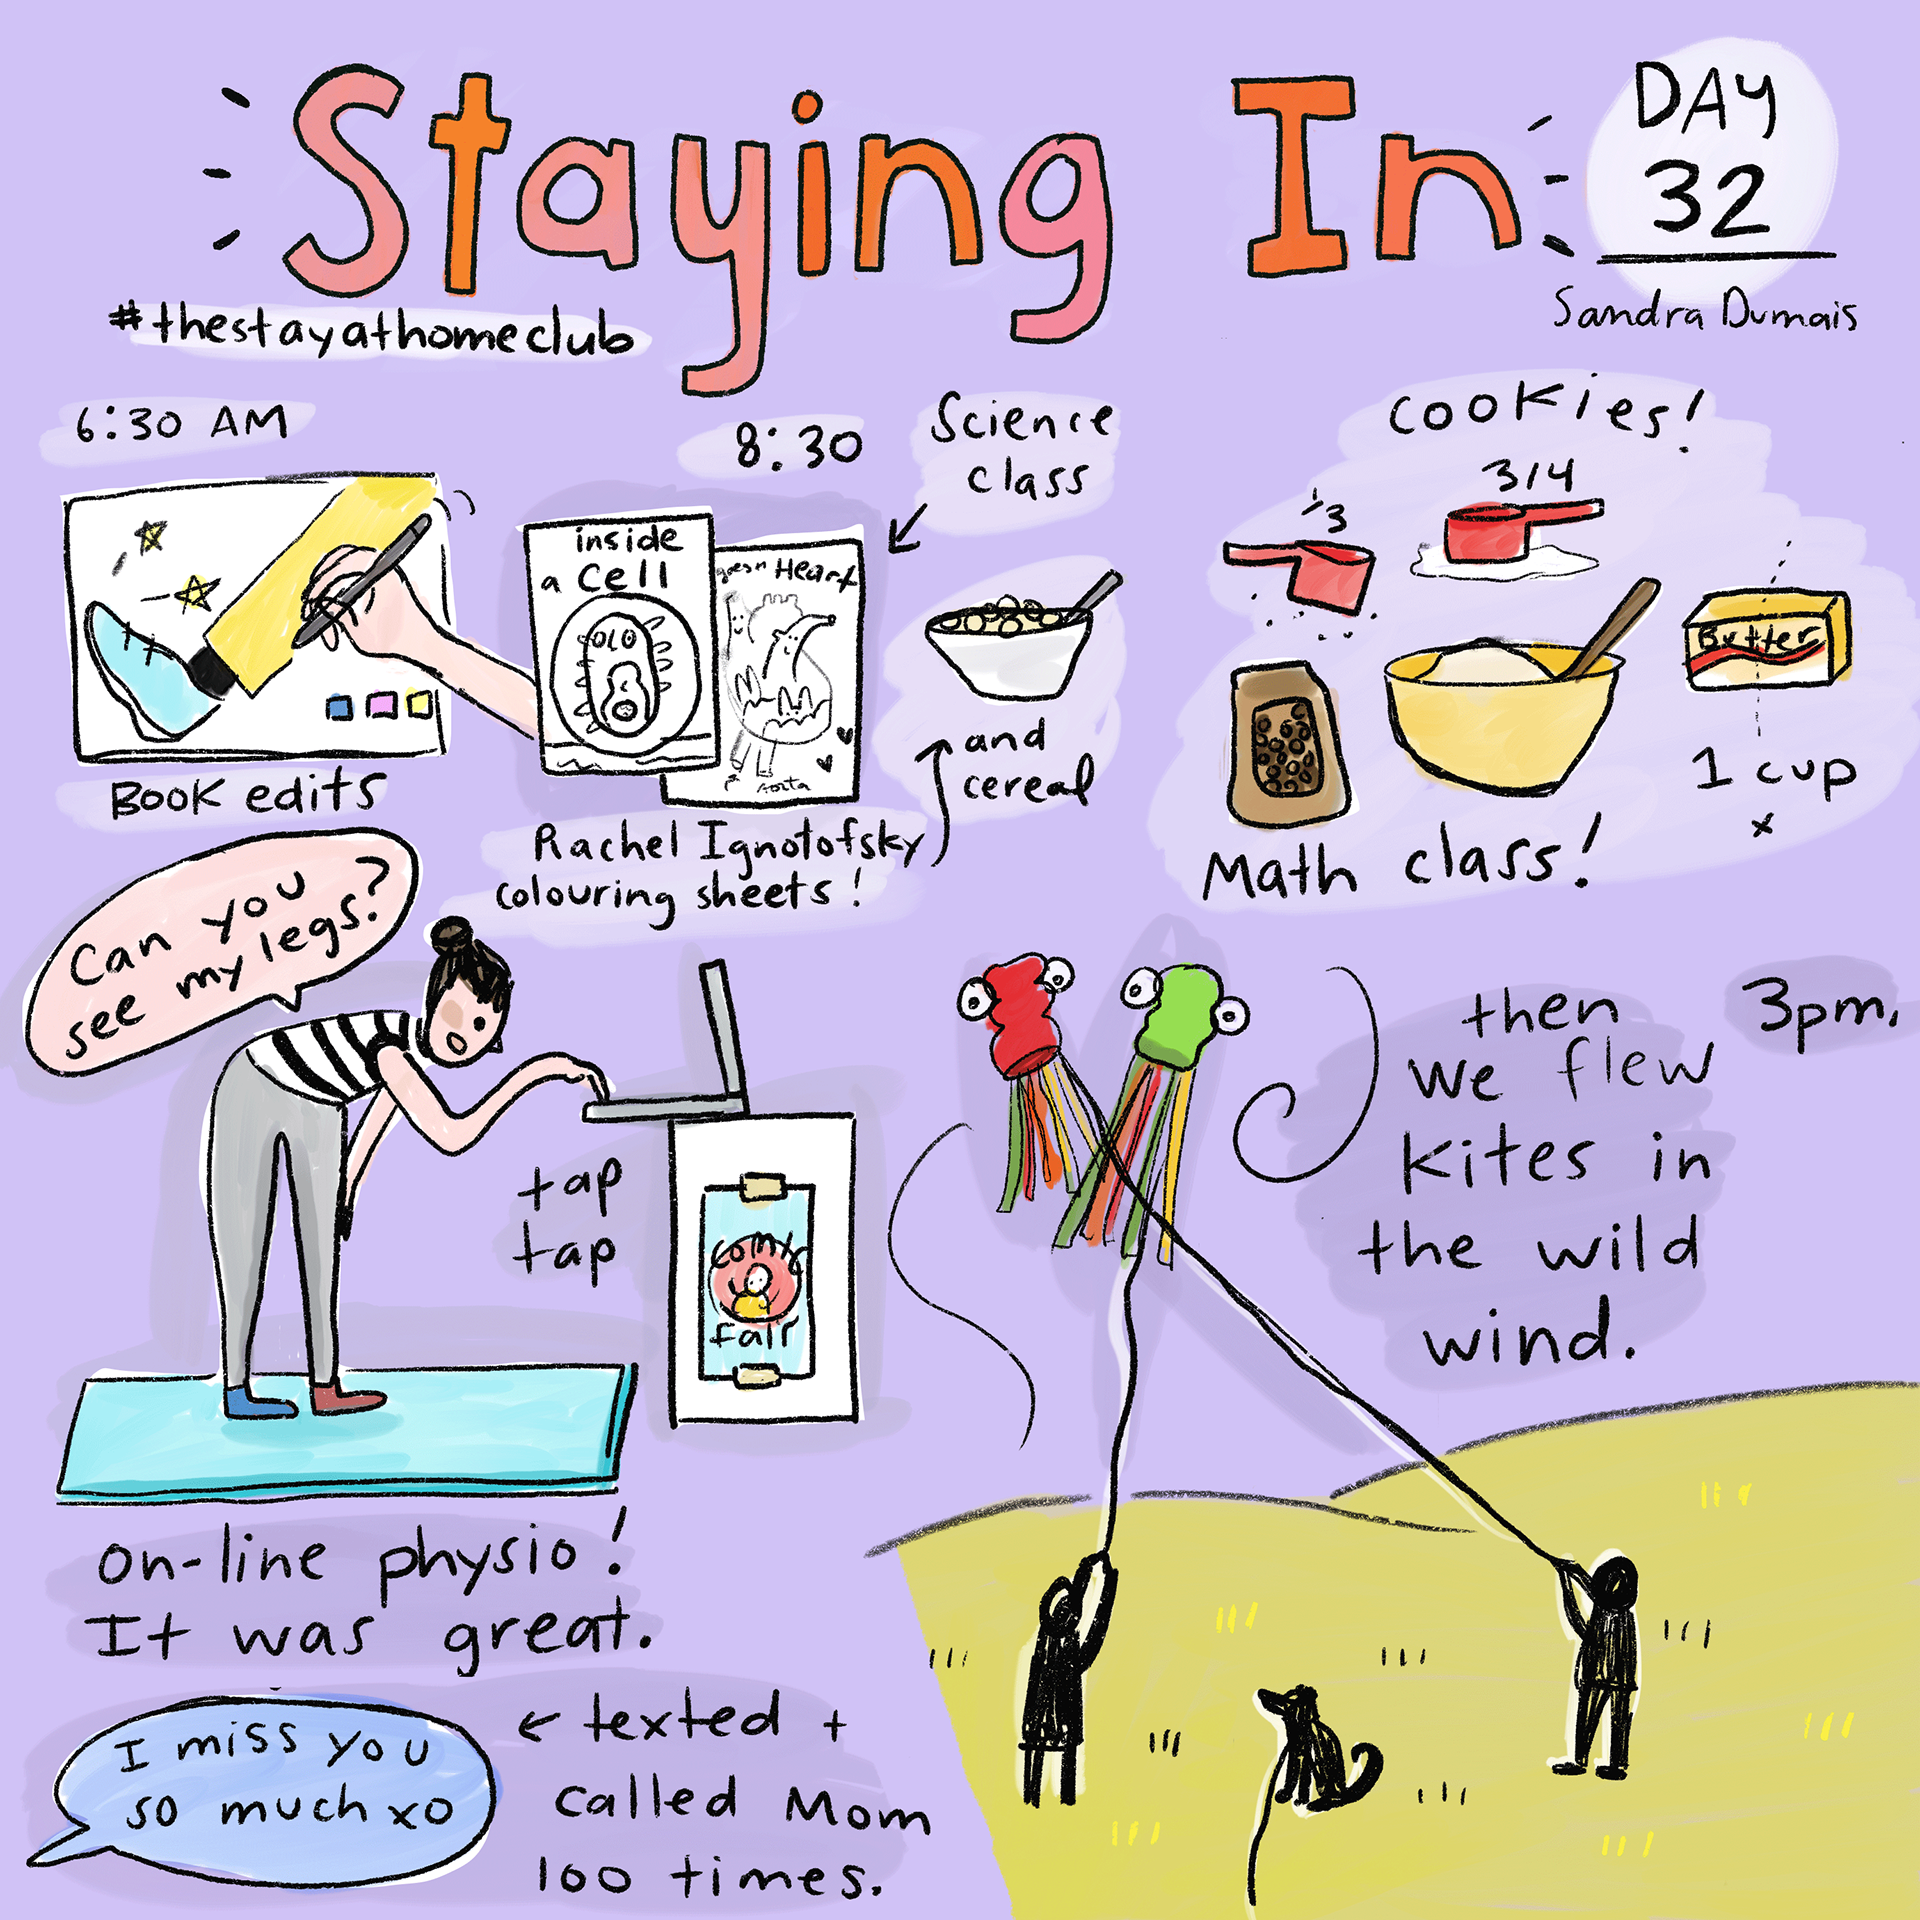 Staying In
DAY
32
Sandra Dumais
#thestayathomeclub
6:30 AM
Book edits
8:30
Science
class
inside
a cell
Heart
Aorta
and
cereal
Rachel Ignotofsky
colouring sheets!
cookies!
1/3
3/4
Butter
1 cup
x
Math class!
Can you
see my legs?
tap
tap
comic
fair
On-line physio!
It was great.
3pm.
then
we flew
kites in
the wild
wind.
I miss you
so much xo
← texted +
called Mom
100 times.